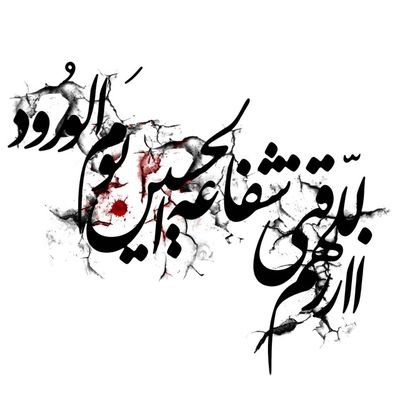 اللهم ارزقنی شفاعة الحسین یَوم الوُرُود